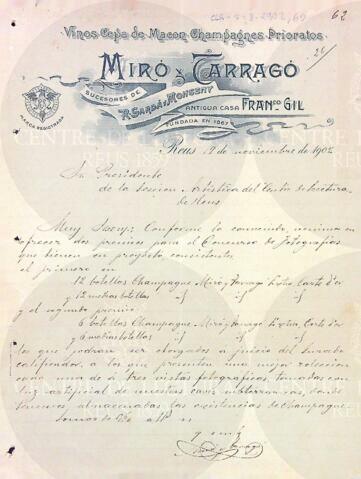 62
Vinos Cepa de Macon Champagnes Prioratos
MIRÓ Y TARRAGÓ
SUCESORES DE
R. SARDÁ Y MONSENY
ANTIGUA CASA FRANCO GIL
FUNDADA EN 1867
MARCA REGISTRADA
Reus 12 de noviembre de 1902
Sr. Presidente
de la Seccion Artística del Centro de Lectura
de Reus
Muy Señor: Conforme lo convenido, venimos en
ofrecer dos premios para el Concurso de fotografias
que tienen en proyecto, consistentes
el primero en
12 botellas Champagne Miró y Tarragó Extra Carte d'or
y 12 medias botellas
y el segundo premio
6 botellas Champagne Miró y Tarragó Extra Carte d'or
y 6 medias botellas
los que podran ser otorgados a juicio del Jurado
calificador, a los que presenten una mejor coleccion
cada una de á tres vistas fotograficas tomadas con
luz artificial de nuestras cavas subterraneas, donde
tenemos almacenadas las existencias de Champagne
Somos de Vd
CENTRE DE LECTURA
REUS 1859